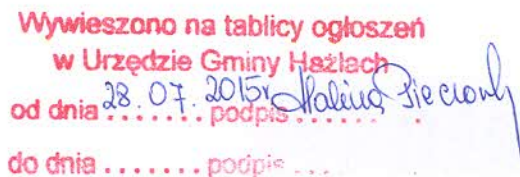 Wywieszono na tablicy ogłoszeń
w Urzędzie Gminy Hażlach
od dnia 28.07.2015r podpis Halina
do dnia ....... podpis ...